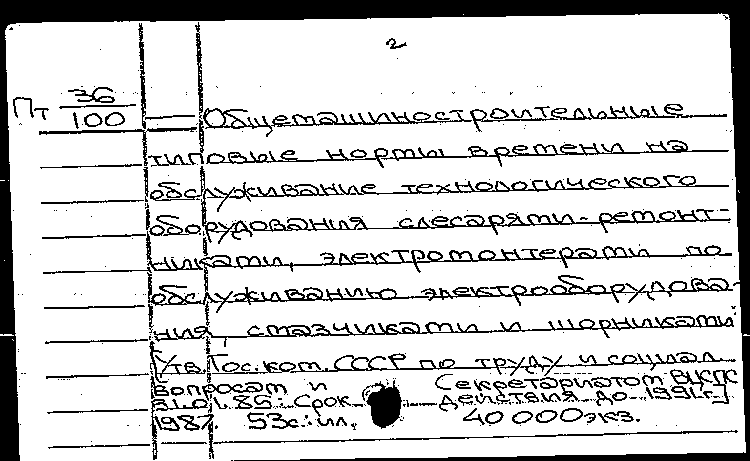 2
Пт 36/100 — Общемашиностроительные
типовые нормы времени на
обслуживание технологического
оборудования слесарями-ремонт-
никами, электромонтерами по
обслуживанию электрооборудова-
ния, смазчиками и шорниками
[Утв. Гос. ком. СССР по труду и социал.
вопросам и Секретариатом ВЦСПС
31.01.86: Срок действия до 1991г.]
1987. 53с.: ил. 40 000 экз.